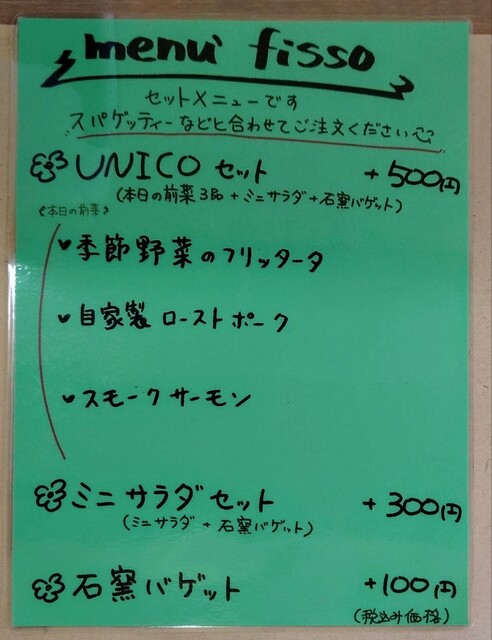 menu' fisso
セットメニューです
スパゲッティーなどと合わせてご注文ください
UNICO セット +500円
(本日の前菜3品+ミニサラダ+石窯バゲット)
《本日の前菜》
季節野菜のフリッタータ
自家製 ローストポーク
スモークサーモン
ミニサラダセット +300円
(ミニサラダ + 石窯バゲット)
石窯バゲット +100円
(税込み価格)